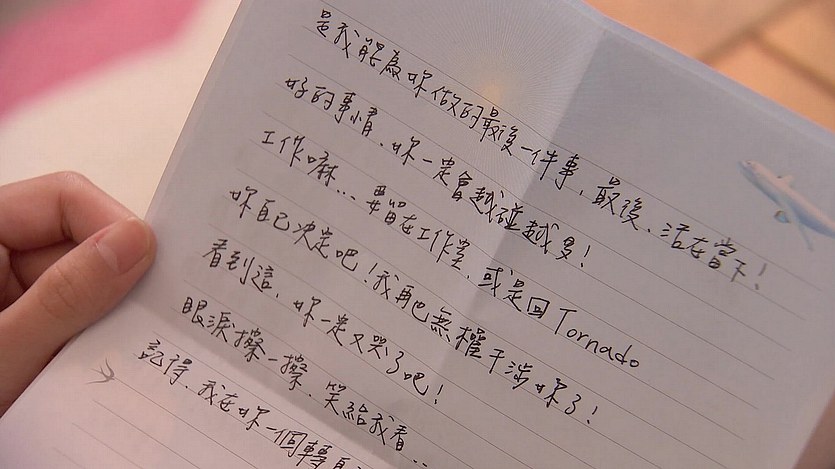 是我能為妳做的最後一件事，最後、活在當下！
好的事情、妳一定會越碰越多！
工作嘛...要留在工作室，或是回Tornado
妳自己決定吧！我再也無權干涉妳了！
看到這，妳一定又哭了吧！
眼淚擦一擦，笑給我看...
記得，我在妳一個轉身